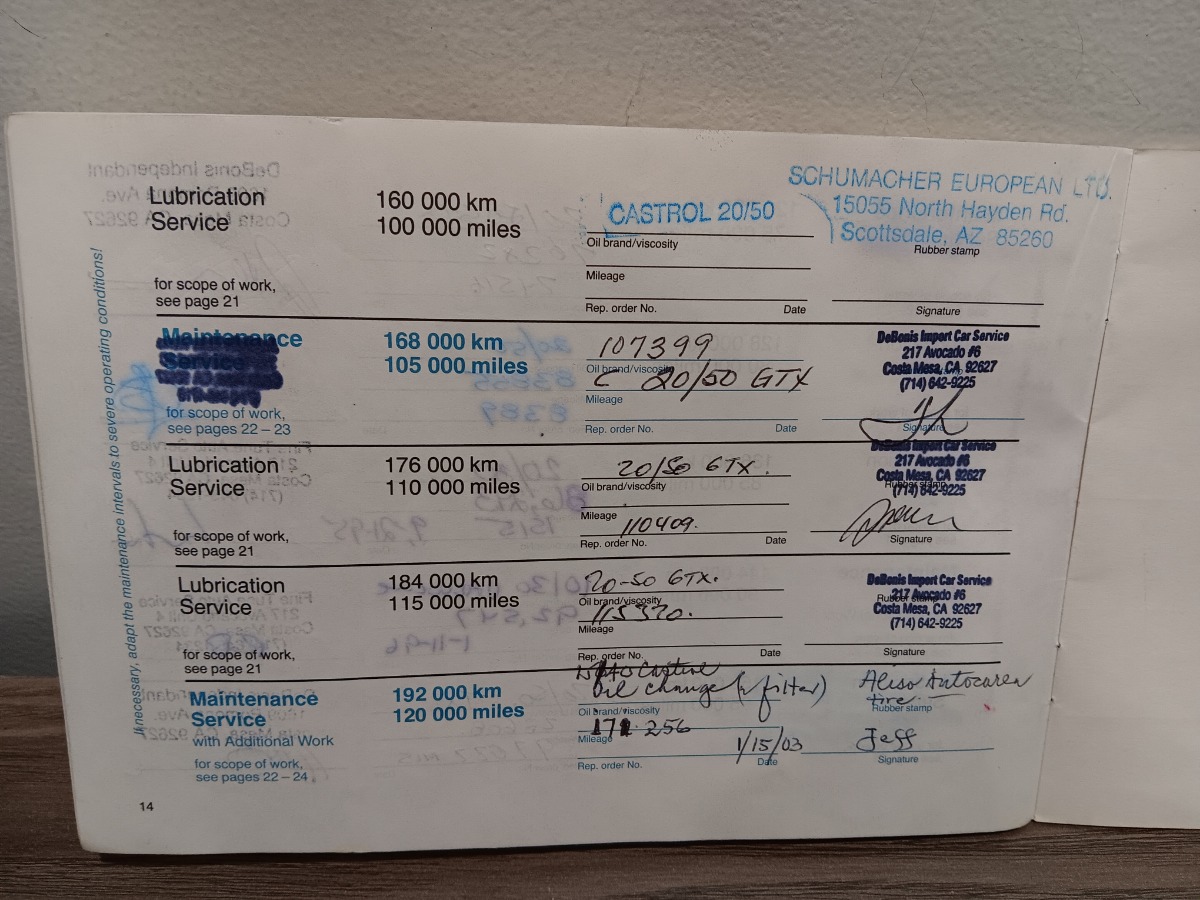 If necessary, adapt the maintenance intervals to severe operating conditions!
Lubrication
Service
160 000 km
100 000 miles
for scope of work,
see page 21
CASTROL 20/50
Oil brand/viscosity
Mileage
Rep. order No. Date
SCHUMACHER EUROPEAN LTD.
15055 North Hayden Rd.
Scottsdale, AZ 85260
Rubber stamp
Signature
Maintenance
Service
168 000 km
105 000 miles
for scope of work,
see pages 22 – 23
107399
Oil brand/viscosity
C 20/50 GTX
Mileage
Rep. order No. Date
DeBonis Import Car Service
217 Avocado #6
Costa Mesa, CA 92627
(714) 642-9225
Signature
Lubrication
Service
176 000 km
110 000 miles
for scope of work,
see page 21
20/50 GTX.
Oil brand/viscosity
Mileage
110409.
Rep. order No. Date
DeBonis Import Car Service
217 Avocado #6
Costa Mesa, CA 92627
Rubber stamp
(714) 642-9225
Signature
Lubrication
Service
184 000 km
115 000 miles
for scope of work,
see page 21
20-50 GTX.
Oil brand/viscosity
115370.
Mileage
Rep. order No. Date
DeBonis Import Car Service
217 Avocado #6
Rubber stamp
Costa Mesa, CA 92627
(714) 642-9225
Signature
Maintenance
Service
with Additional Work
192 000 km
120 000 miles
for scope of work,
see pages 22 – 24
Oil change (w filter)
Oil brand/viscosity
171 256
Mileage
1/15/03
Rep. order No. Date
Aliso Autocare
tire
Rubber stamp
Jeff
Signature
14